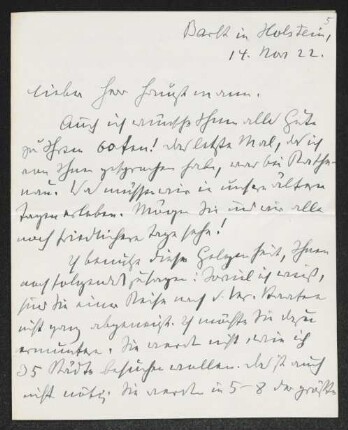 5
Barlt in Holstein,
14. Nov 22.
Lieber Herr Hauptmann.
Auch ich wünsche Ihnen alle Güte
zu Ihrem 60ten! Das letzte Mal, da ich
von Ihnen gesprochen habe, war bei Rathe-
nau. Was müssen wir in unsern ältern
Tagen erleben. Mögen Sie und wir alle
noch friedlichere Tage sehn!
Ich benutze diese Gelegenheit, Ihnen
noch folgendes zu sagen: Soviel ich weiß,
sind Sie einer Reise nach d. Ver. Staaten
nicht ganz abgeneigt. Ich möchte Sie dazu
ermuntern. Sie werden nicht, wie ich
35 Städte besuchen wollen. Das ist auch
nicht nötig. Sie werden in 5-8 der größten